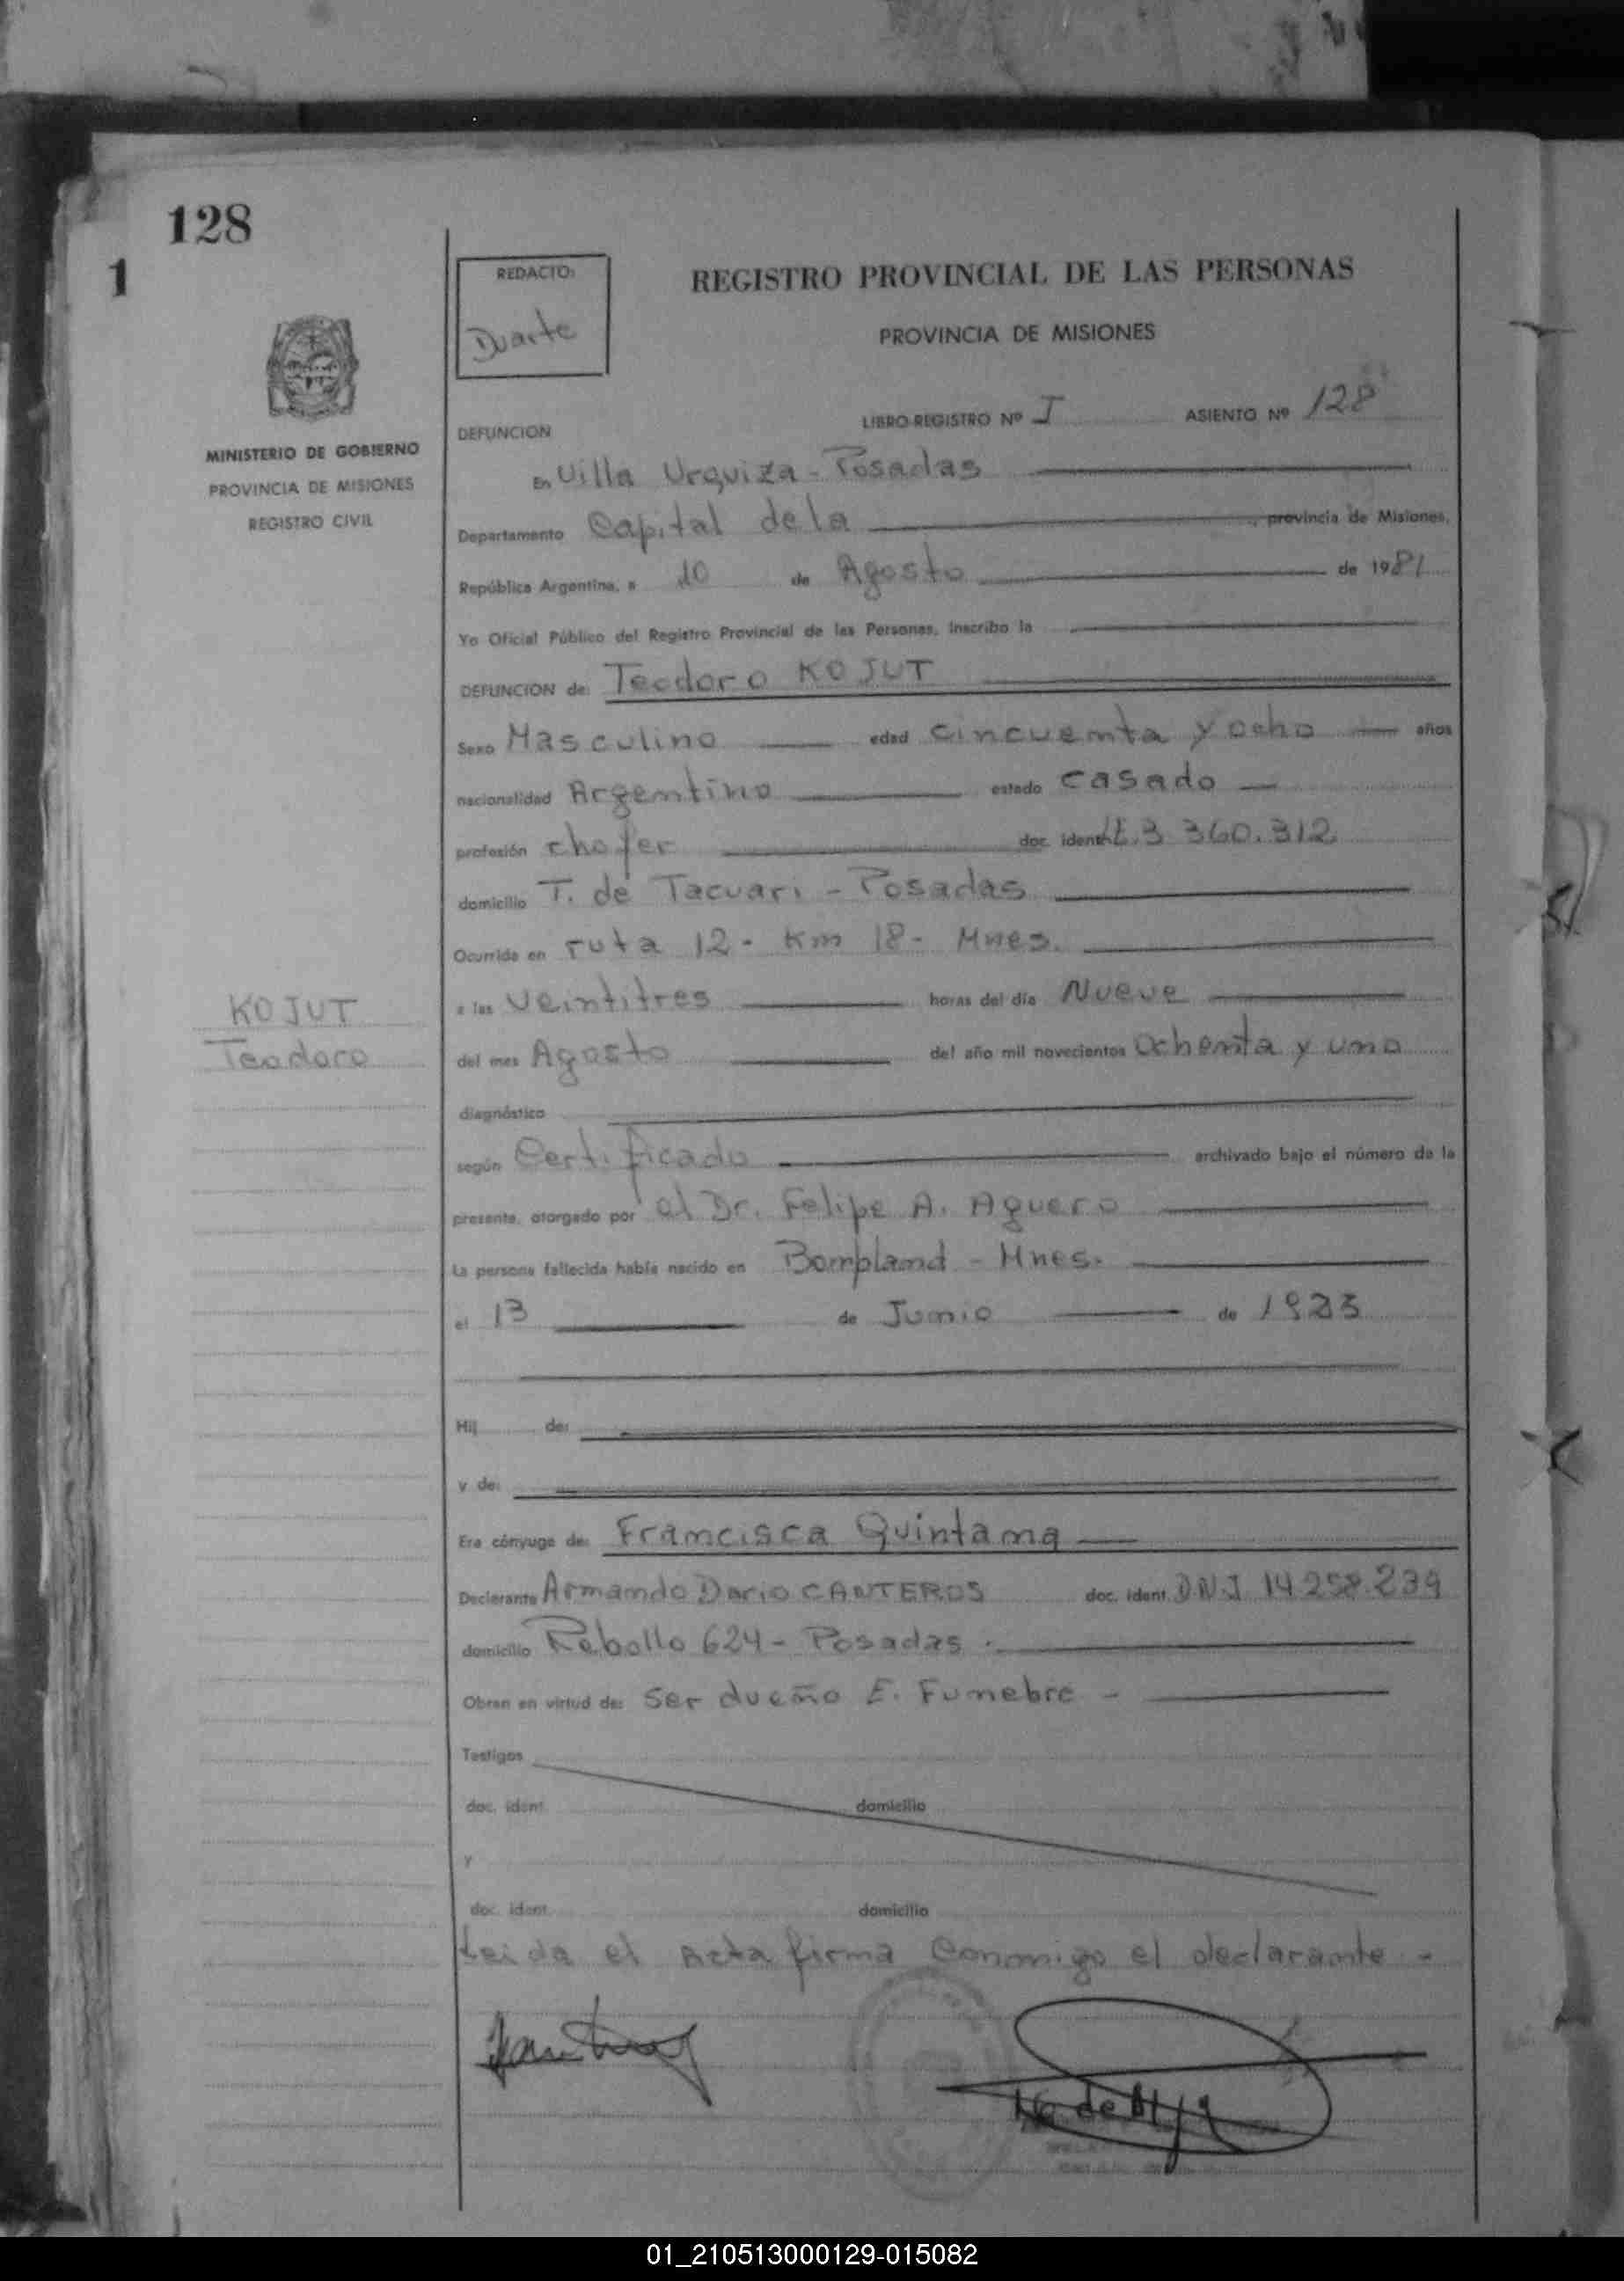 128
1
REDACTO:
Duarte
REGISTRO PROVINCIAL DE LAS PERSONAS
PROVINCIA DE MISIONES
MINISTERIO DE GOBIERNO
PROVINCIA DE MISIONES
REGISTRO CIVIL
DEFUNCION LIBRO-REGISTRO Nº I ASIENTO Nº 128
En Villa Urquiza - Posadas
Departamento Capital de la , provincia de Misiones,
República Argentina, a 10 de Agosto de 1981
Yo Oficial Público del Registro Provincial de las Personas, inscribo la
DEFUNCION de: Teodoro KOJUT
Sexo Masculino edad cincuenta y ocho años
nacionalidad Argentino estado casado
profesión chofer doc. ident. L.E. 3 360.312
domicilio T. de Tacuari - Posadas
Ocurrida en ruta 12 - Km 18 - Mnes.
a las veintitres horas del día Nueve
KOJUT
Teodoro
del mes Agosto del año mil novecientos ochenta y uno
diagnóstico
según Certificado archivado bajo el número de la
presente, otorgado por el Dr. Felipe A. Aguero
La persona fallecida había nacido en Bompland - Mnes.
el 13 de Junio de 1923
Hij de:
y de:
Era cónyuge de: Francisca Quintana
Declarante Armando Dario CANTEROS doc. ident. D.N.I 14.258.239
domicilio Rebollo 624 - Posadas.
Obran en virtud de: ser dueño E. Funebre -
Testigos
doc. ident. domicilio
y
doc. ident. domicilio
Leida el Acta firma Conmigo el declarante -
01_210513000129-015082